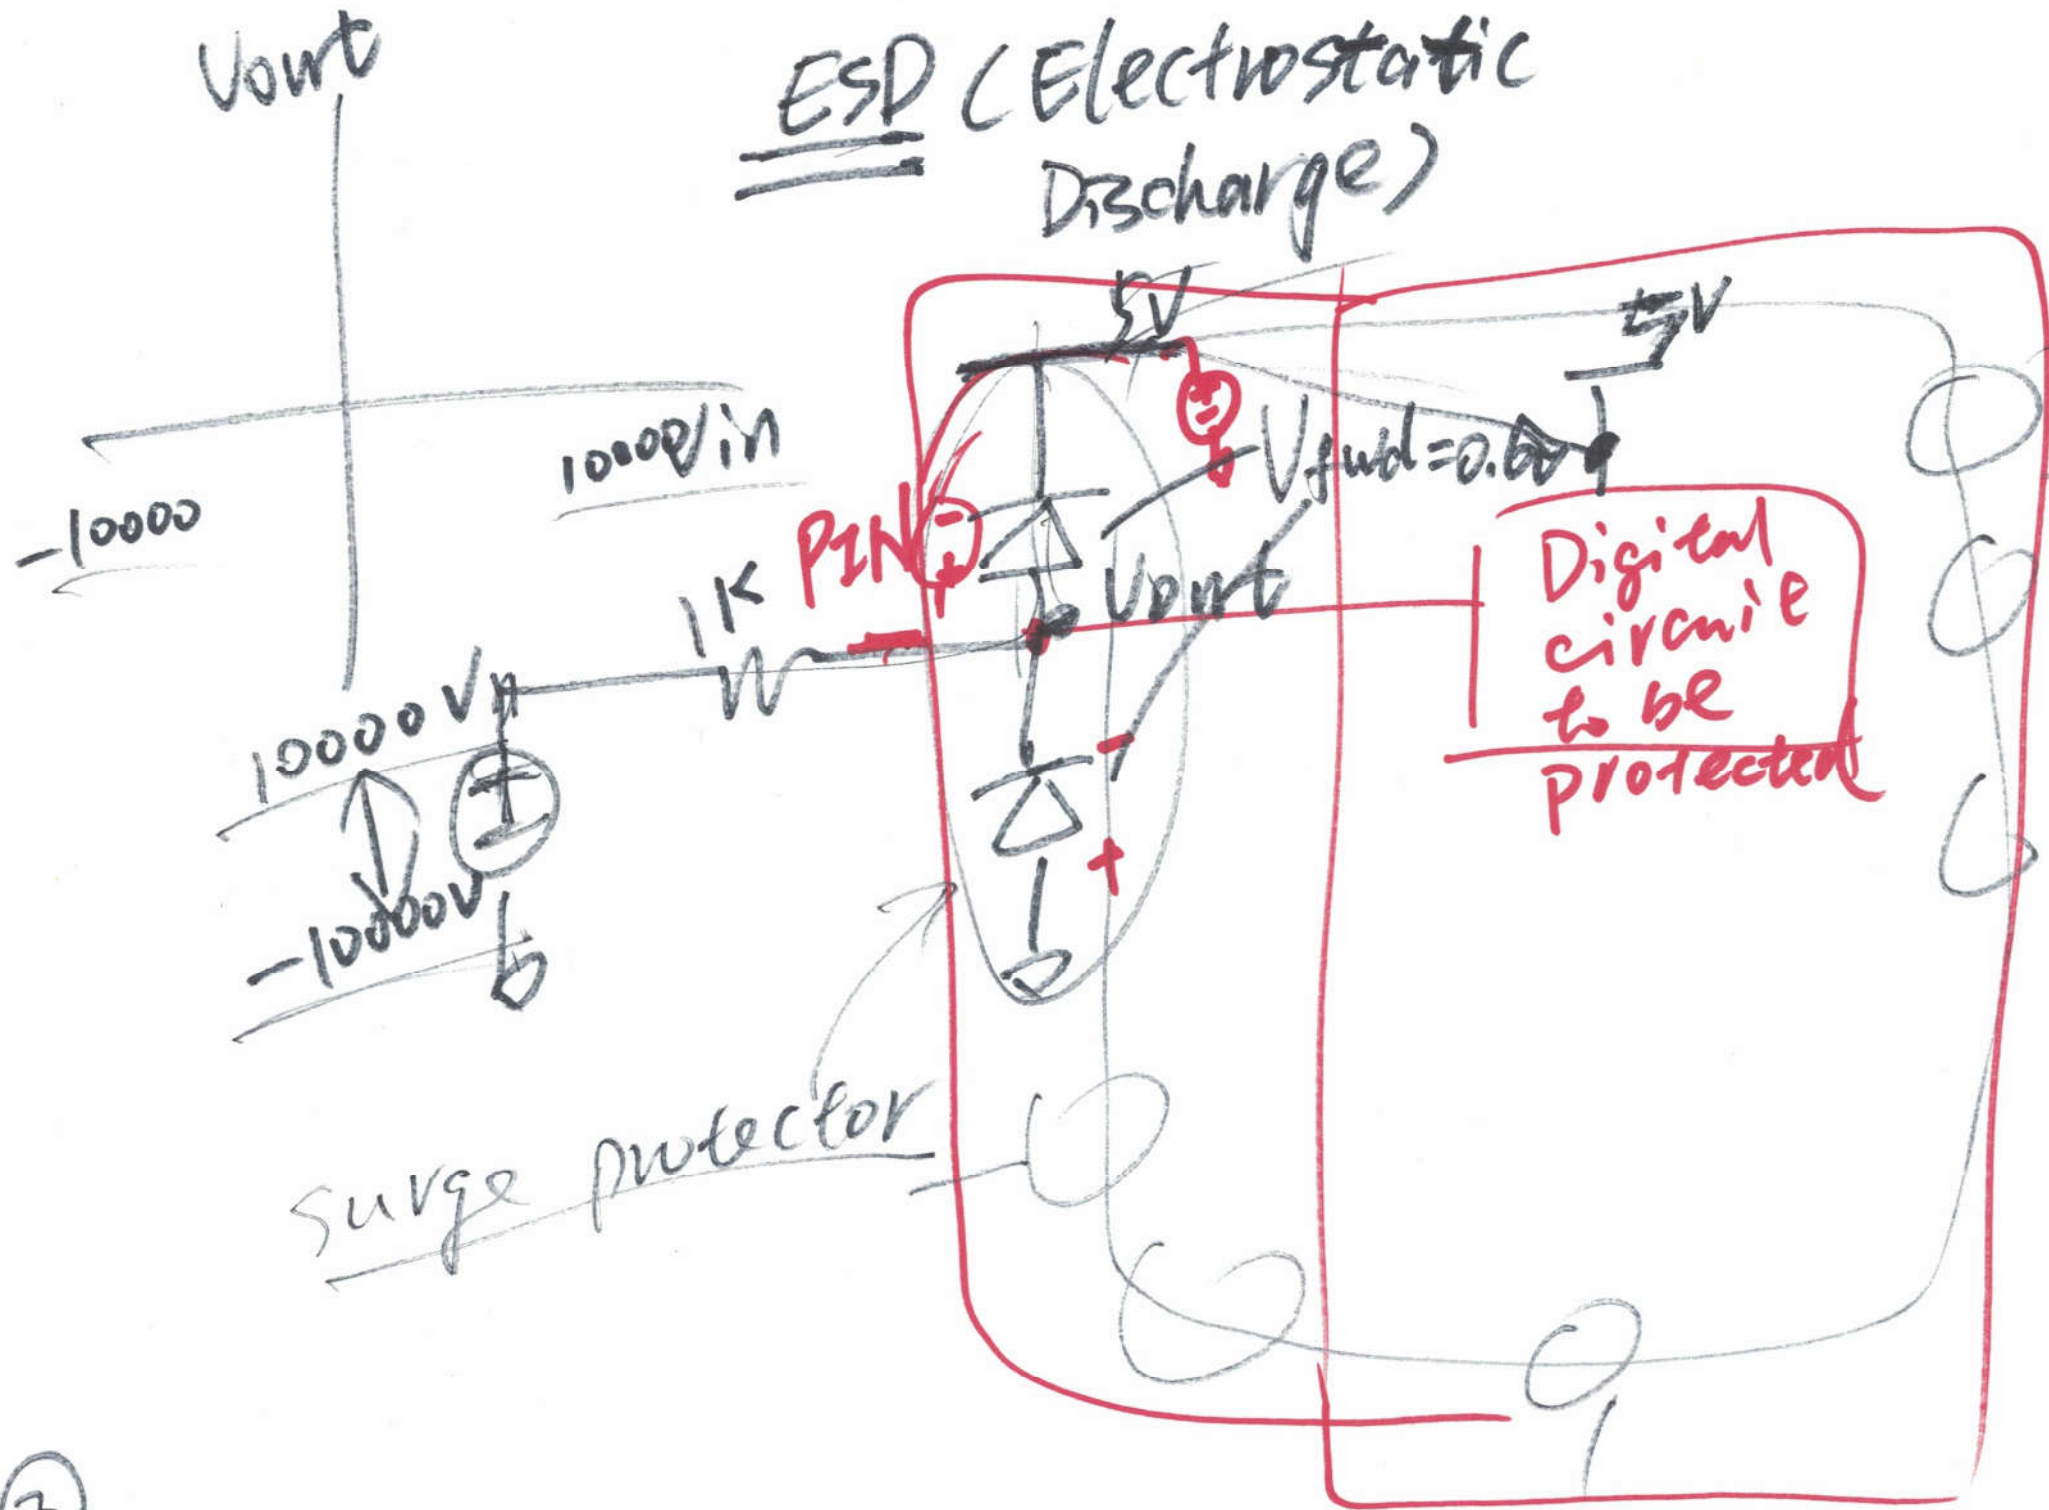 Vout
ESD (Electrostatic
Discharge)
5V
5V
10000
Vin
-10000
PIN
Vfwd=0.6v
1K
Vout
Digital
circuit
to be
protected
10000V
-10000V
surge protector
2